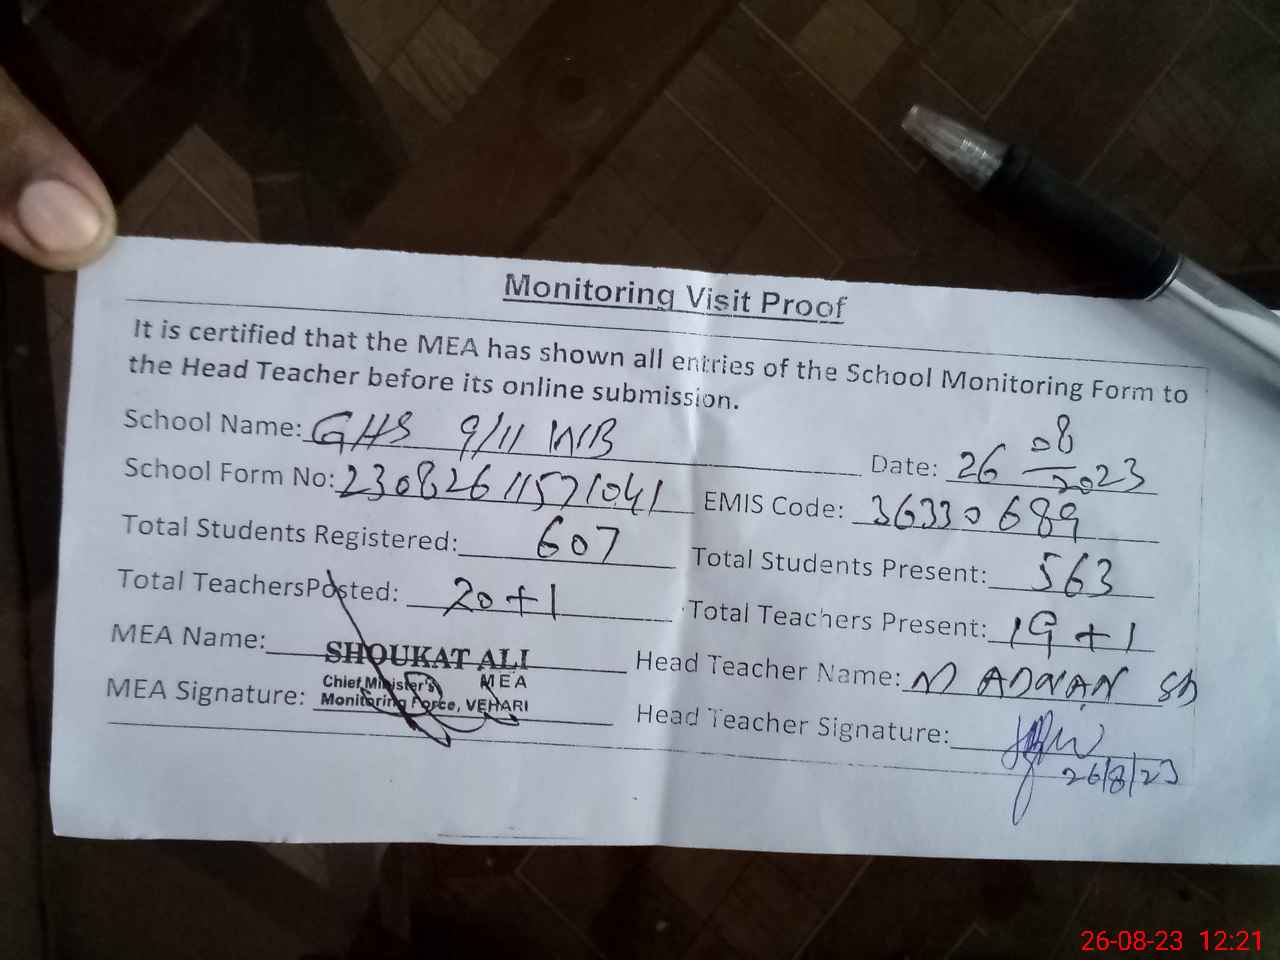 Monitoring Visit Proof
It is certified that the MEA has shown all entries of the School Monitoring Form to
the Head Teacher before its online submission.
School Name: GHS 9/11 WB Date: 26 08 2023
School Form No: 23082611571041 EMIS Code: 36330689
Total Students Registered: 607 Total Students Present: 563
Total TeachersPosted: 20+1 Total Teachers Present: 19+1
MEA Name: SHOUKAT ALI Head Teacher Name: M ADNAN
MEA
Chief Minister's
Monitoring Force, VEHARI
MEA Signature: Head Teacher Signature:
26/8/23
26-08-23 12:21